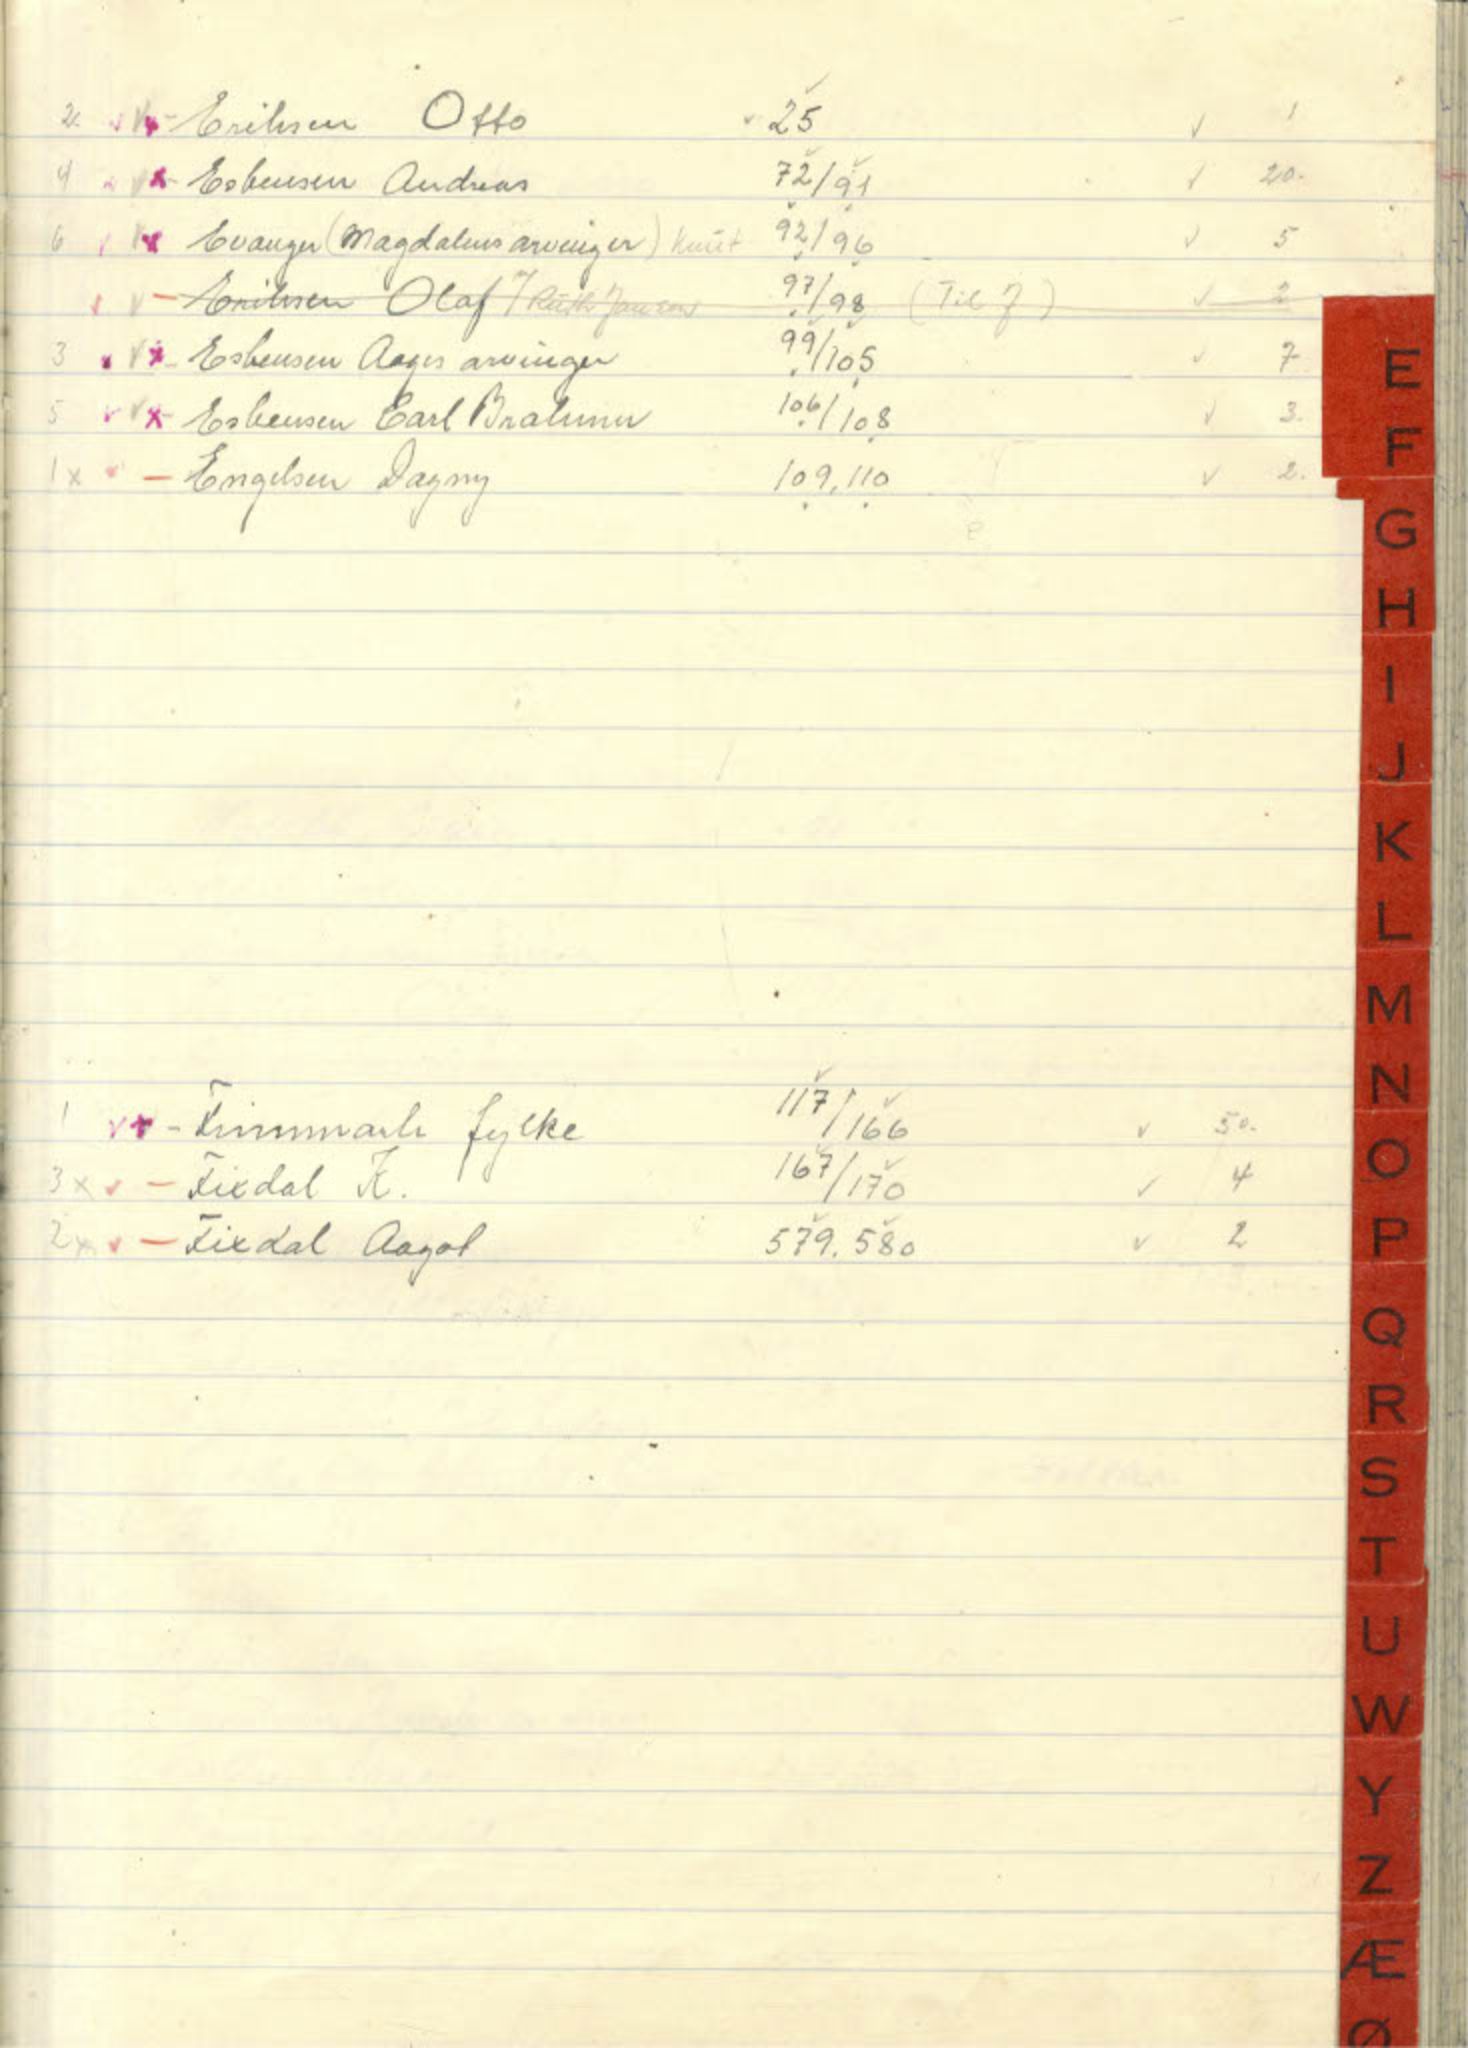 2. Eriksen Otto 25 1
4 Esbensen Andreas 72/91 20.
6 Evanger (Magdalenes arvinger) Knut 92/96 5
Eriksen Olaf / Ruth Jansen 97/98 (Til J) 2
3 Esbensen Aages arvinger 99/105 7
5 Esbensen Carl 106/108 3.
1 x Engelsen Dagny 109, 110 2.
1 Finnmark fylke 117/166 50.
3 x Fixdal K. 167/170 4
2 x Fixdal Aagot 579. 580 2
E
F
G
H
I
J
K
L
M
N
O
P
Q
R
S
T
U
W
Y
Z
Æ
Ø